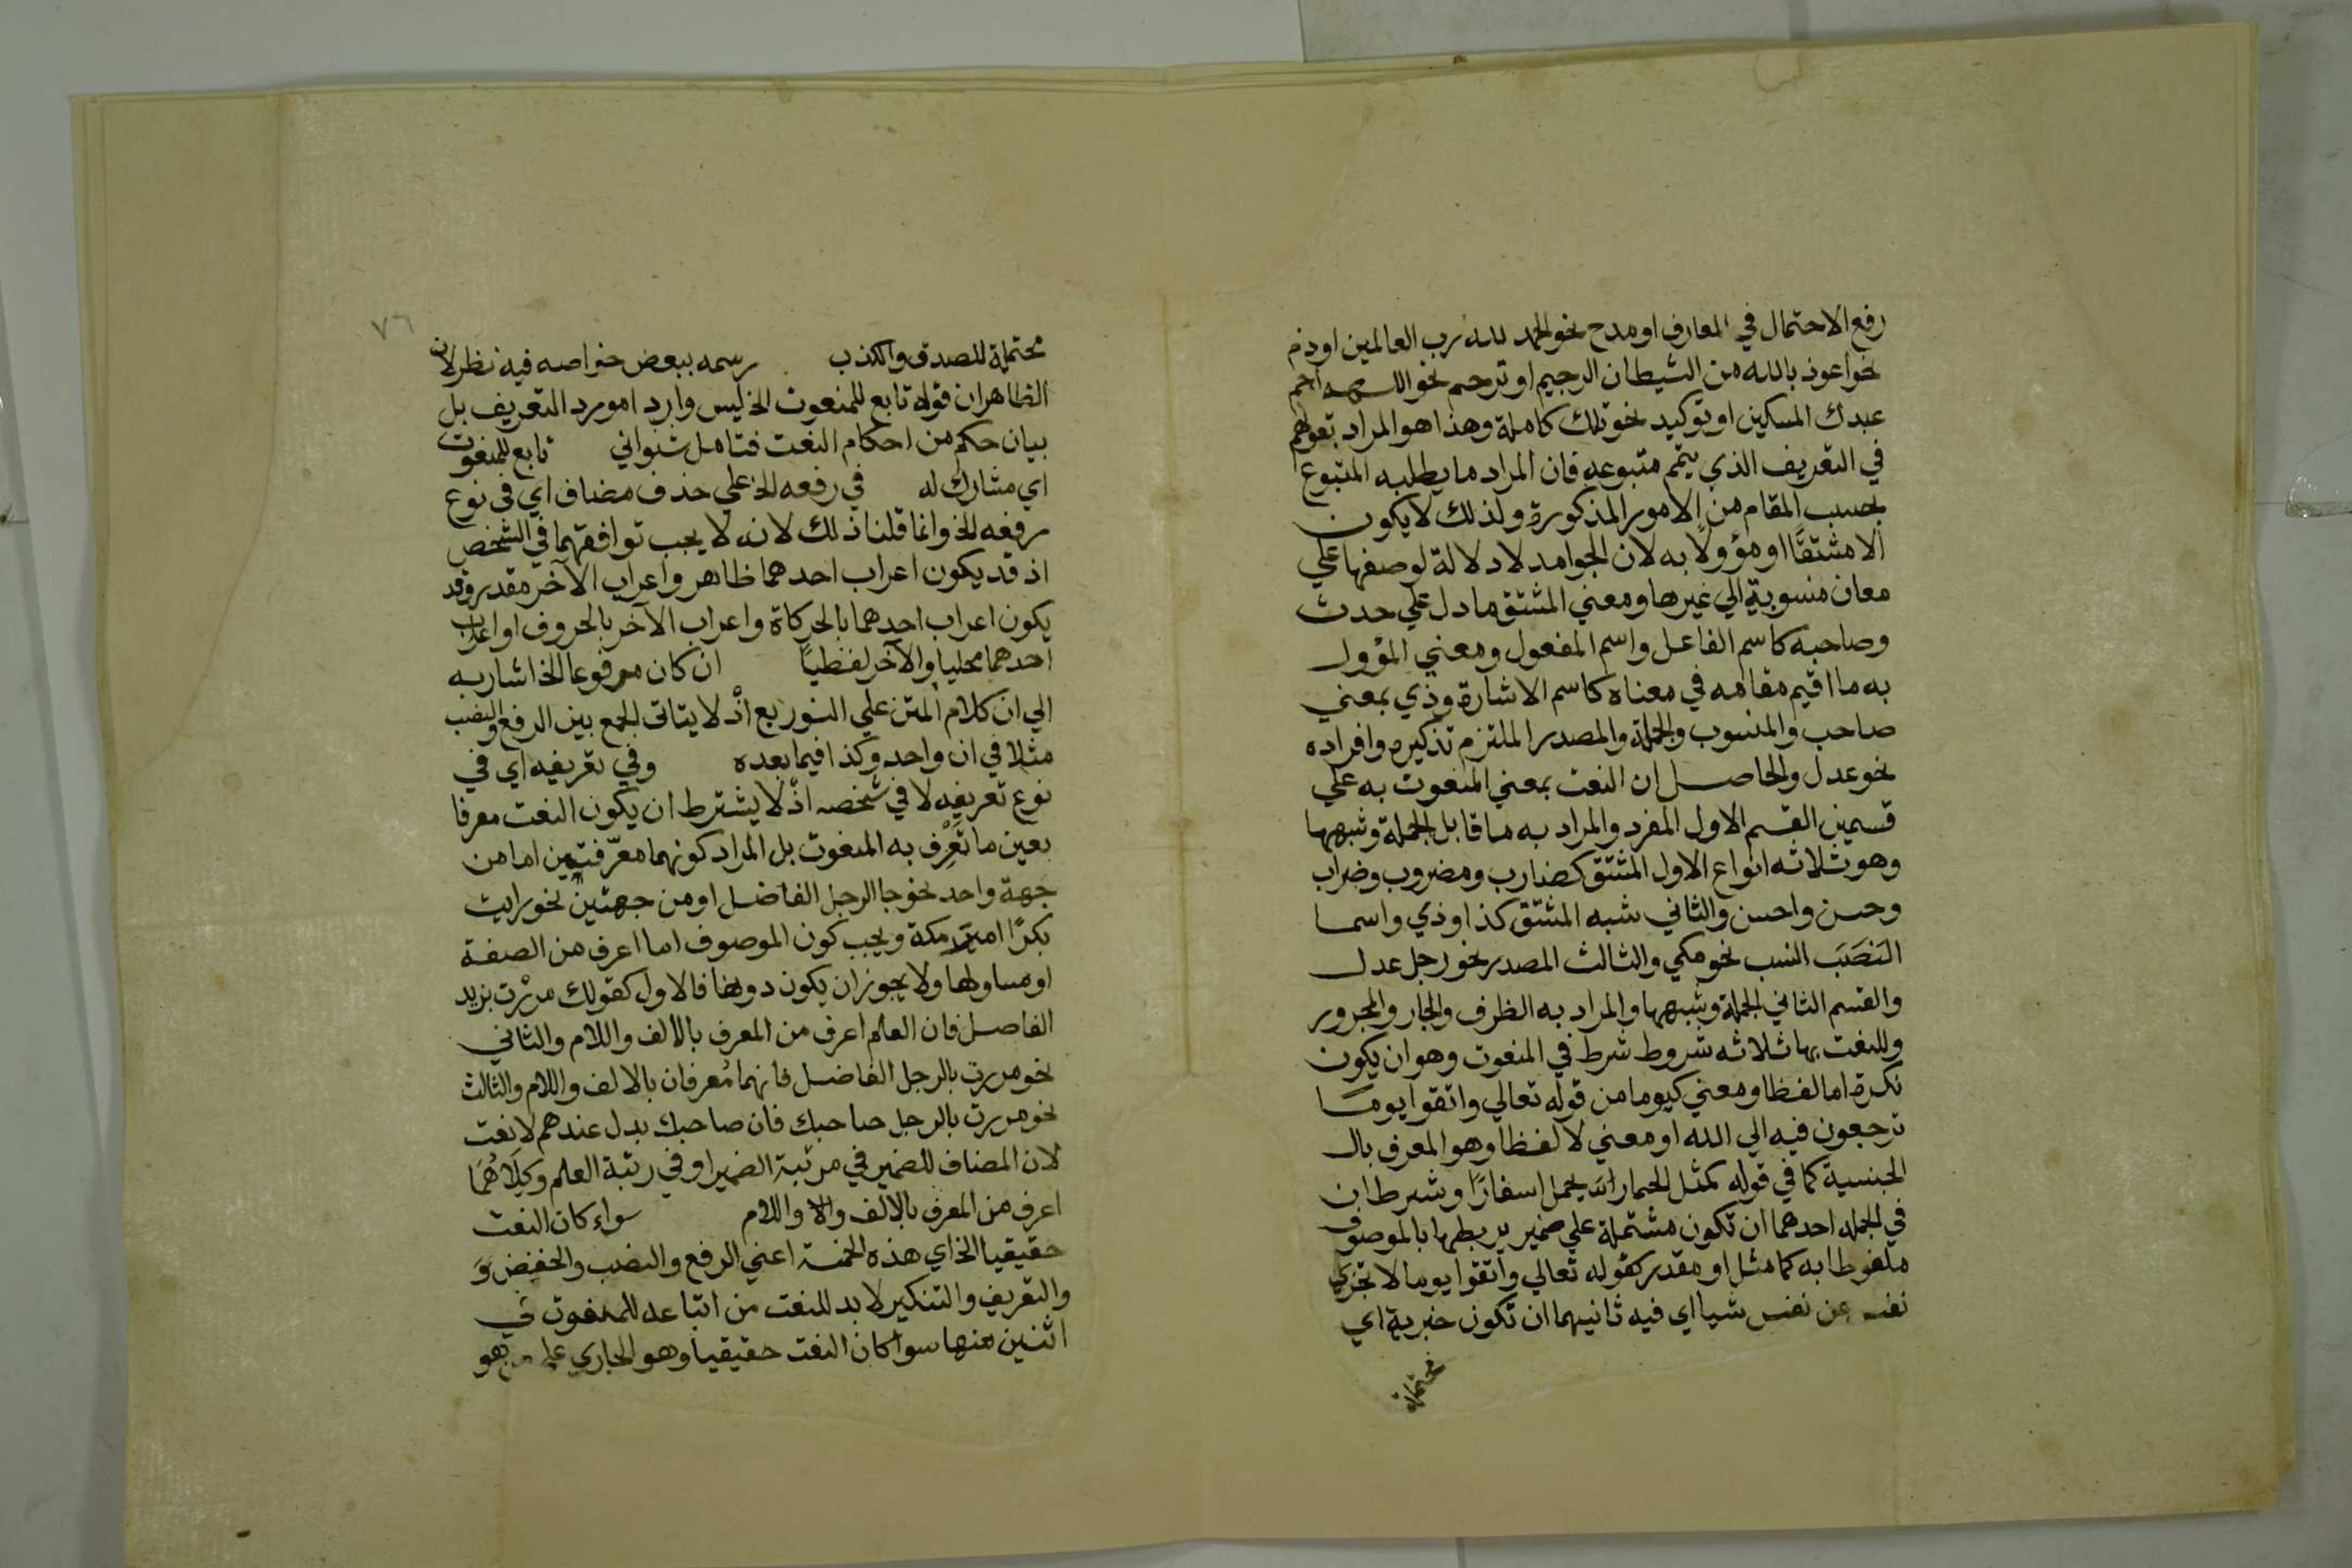 رفع الاحتمال في المعارف او مدح نحو الحمد لله رب العالمين او ذم
نحو اعوذ بالله من الشيطان الرجيم او ترحم نحو اللهم ارحم
عبدك المسكين او توكيد نحو تلك كاملة وهذا هو المراد بقولهم
في التعريف الذي يتم متبوعه فان المراد ما يطلبه المتبوع
بحسب المقام من الامور المذكورة ولذلك لا يكون
الا مشتقًّا او مؤولًا به لان الجوامد لا دلالة لوصفها علي
معان منسوبة الي غيرها ومعني المشتق ما دل علي حدث
وصاحبه كاسم الفاعل واسم المفعول ومعني المؤول
به ما اقيم مقامه في معناه كاسم الاشارة وذي بمعني
صاحب والمنسوب والجملة والمصدر الملتزم تذكيره وافراده
نحو عدل والحاصل ان النعت بمعني المنعوت به علي
قسمين القسم الاول المفرد والمراد به ما قابل الجملة وشبهها
وهو ثلاثه انواع الاول المشتق كضارب ومضروب وضراب
وحسن واحسن والثاني شبه المشتق كذا وذي واسما
النسب نحو مكي والثالث المصدر نحو رجل عدل
والقسم الثاني الجملة وشبهها والمراد به الظرف والجار والمجرور
وللنعت بها ثلاثه شروط شرط في المنعوت وهو ان يكون
نكرة اما لفظا ومعني كيوما من قوله تعالي واتقوا يومًا
ترجعون فيه الي الله او معني لا لفظا وهو المعرف بال
الجنسية كما في قوله كمثل الحمار يحمل اسفارًا وشرطان
في الجمله احدهما ان تكون مشتملة علي ضمير يربطها بالموصوف
ملفوظا به كما مثل او مقدر كقوله تعالي واتقوا يوما لا تجزي
نفس عن نفس شيا اي فيه ثانيهما ان تكون خبرية اي
محتملة
٧٦
محتملة للصدق والكذب رسمه ببعض خواصه فيه نظر لان
الظاهر ان قوله تابع للمنعوت الخ ليس واردا مورد التعريف بل
بيان حكم من احكام النعت فتامل شنواني تابع للمنعوت
اي مشارك له في رفعه الخ علي حذف مضاف اي في نوع
رفعه الخ وانما قلنا ذلك لانه لا يجب توافقهما في الشخص
اذ قد يكون اعراب احدهما ظاهر واعراب الآخر مقدر وقد
يكون اعراب احدهما بالحركاة واعراب الآخر بالحروف او اعراب
احدهما محليا والآخر لفظيًا ان كان مرفوعا الخ اشار به
الي ان كلام المتن علي التوزيع اذْ لا يتاتى الجمع بين الرفع والنصب
مثلا في ان واحد وكذا فيما بعده وفي تعريفه اي في
نوع تعريفه لا في شخصه اذْ لا يشترط ان يكون النعت معرفا
بعين ما تَعَرَّف به المنعوت بل المراد كونهما معرّفتين اما من
جهة واحد نحو جا الرجل الفاضل او من جهتين نحو رايت
بكرًا امير مكة ويجب كون الموصوف اما اعرف من الصفة
او مساولها ولا يجوز ان يكون دونها فالاول كقولك مررْت بزيد
الفاصل فان العلم اعرف من المعرف بالالف واللام والثاني
نحو مررت بالرجل الفاضل فانهما مُعرفان بالالف واللام والثالث
نحو مررت بالرجل صاحبك فان صاحبك بدل عندهم لا نعت
لان المضاف للضمير في مرتبة الضمير او في رتبة العلم وكِلَاهُمَا
اعرف من المعرف بالالف والا واللام سواء كان النعت
حقيقيا الخ اي هذه الخمسة اعني الرفع والنصب والخفض وَ
والتعريف والتنكير لا بد للنعت من اتباعه للمنعوت في
اثنين منها سوا كان النعت حقيقيا وهو الجاري هو